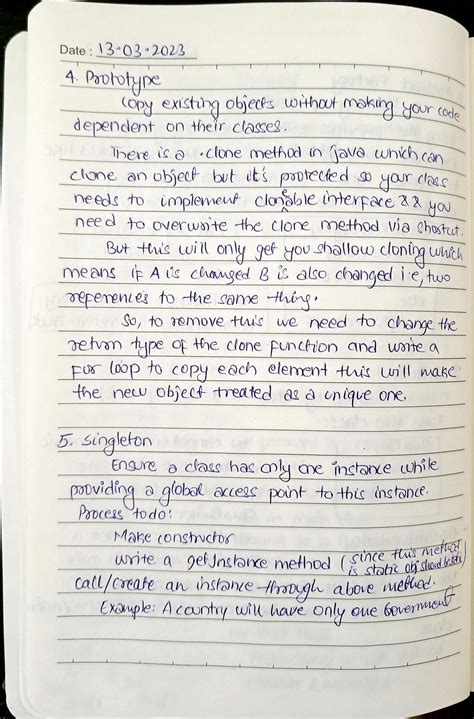 Date: 13-03-2023
4. Prototype
Copy existing objects without making your code
dependent on their classes.
There is a .clone method in java which can
clone an object but it's protected so your class
needs to implement clonable interface && you
need to overwrite the clone method via shortcut.
But this will only get you shallow cloning which
means if A is changed B is also changed i.e, two
references to the same thing.
So, to remove this we need to change the
return type of the clone function and write a
for loop to copy each element this will make
the new object treated as a unique one.
5. Singleton
Ensure a class has only one instance while
providing a global access point to this instance.
Process to do:
Make constructor
write a getInstance method (since this method
is static obj should be static)
call/create an instance through above method.
Example: A country will have only one Government